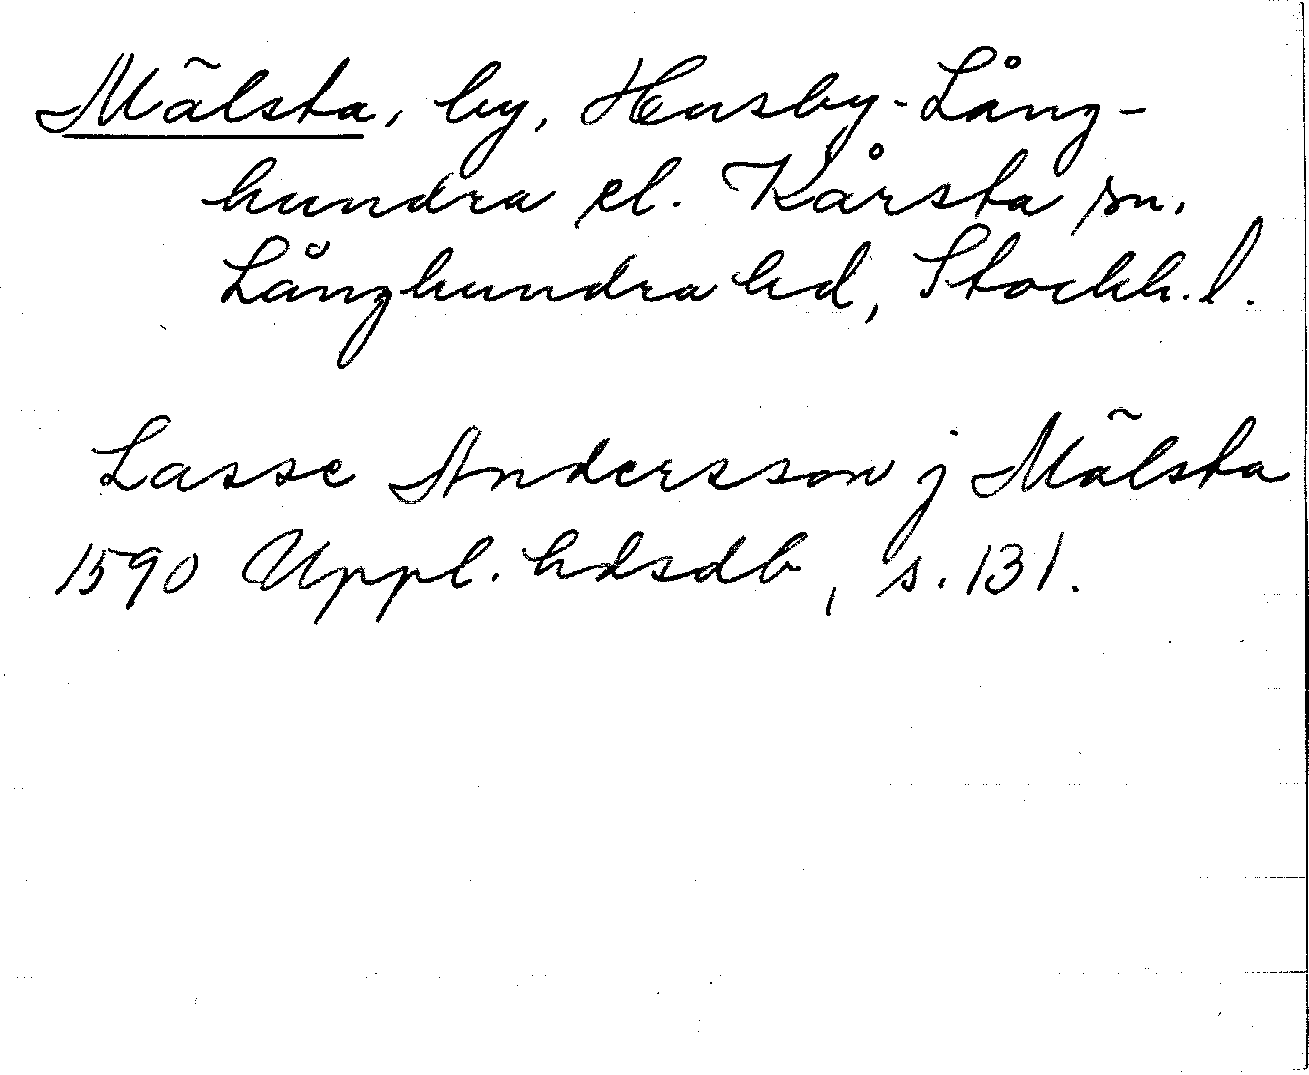 Mälsta, by, Husby-Lång-
hundra el. Kårsta sn.
Långhundra hd, Stockh. l.
Lasse Andersson j Mälsta
1590 Uppl. hdsdb, s. 131.